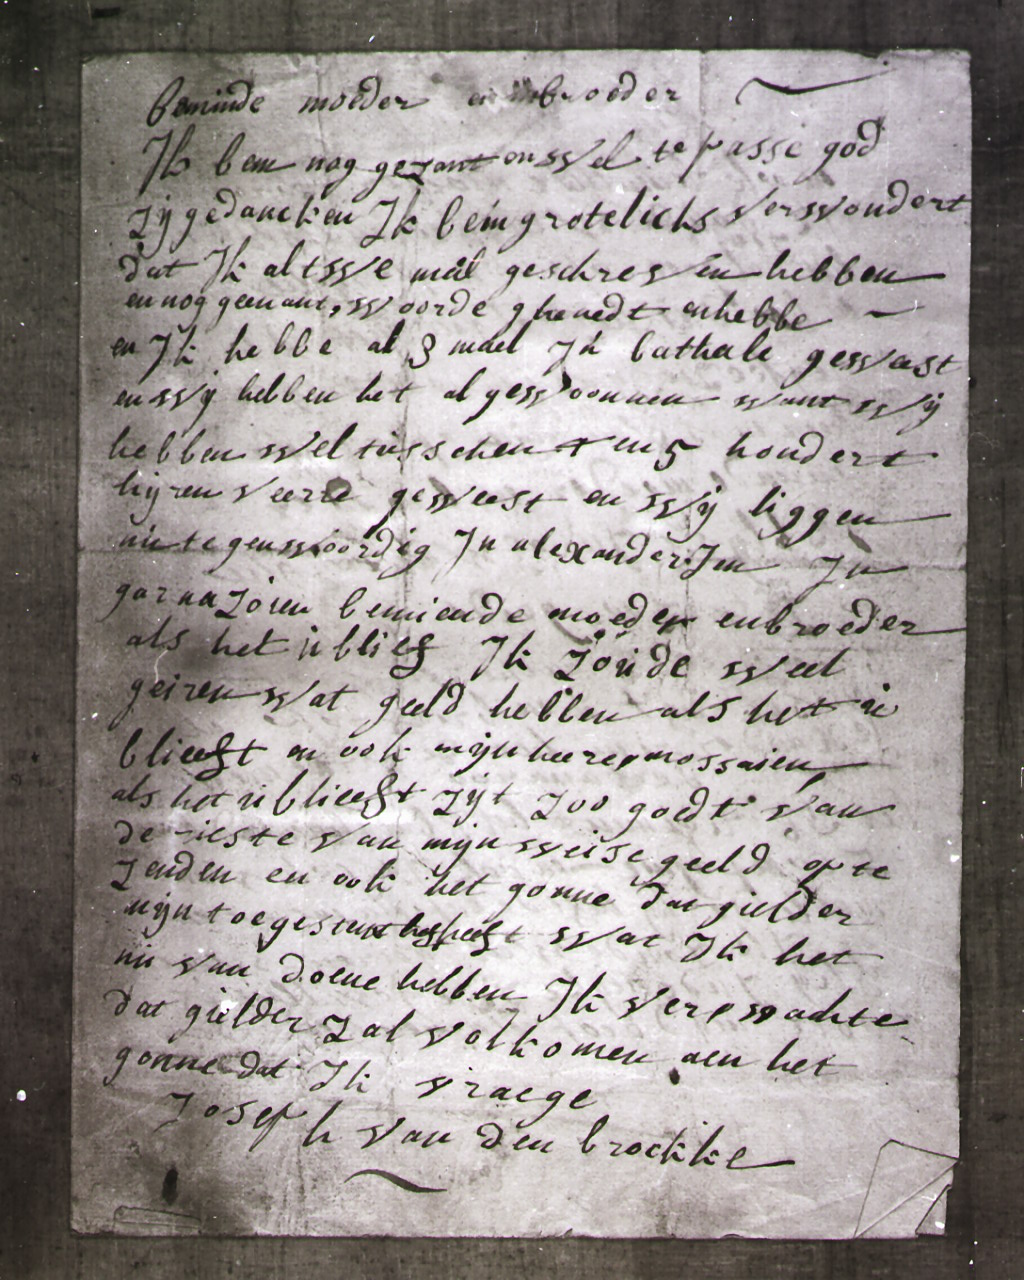 beminde moeder en broeder
Ik ben nog gezont en wel te passe god
zij gedancken Ik ben grotelicks verwondert
dat Ik al twe mael geschreven hebben
en nog geen antwoorde ghenedt en hebbe
en Ik hebbe al 3 mael In bathale gewest
en wij hebben het al gewonnen want wij
hebben wel tusschen 4 en 5 hondert
hijren veere geweest en wij liggen
nu tegenwoordig In alexanderJen In
garnazoien bemiende moeder en broeder
als het u blieft Ik zoude weel
geiren wat geeld hebben als het u
blieeft en ook mijn heere mossaien
als het u blieeft zijt zoo goedt van
de reeste van mijn weise geeld op te
zenden en ook het gonne dat gielder
mijn toegesent heeft wat Ik het
nu van doene hebben Ik verwachte
dat gielder zal volkomen aen het
gonne dat Ik vraege
Joseph van den brockke